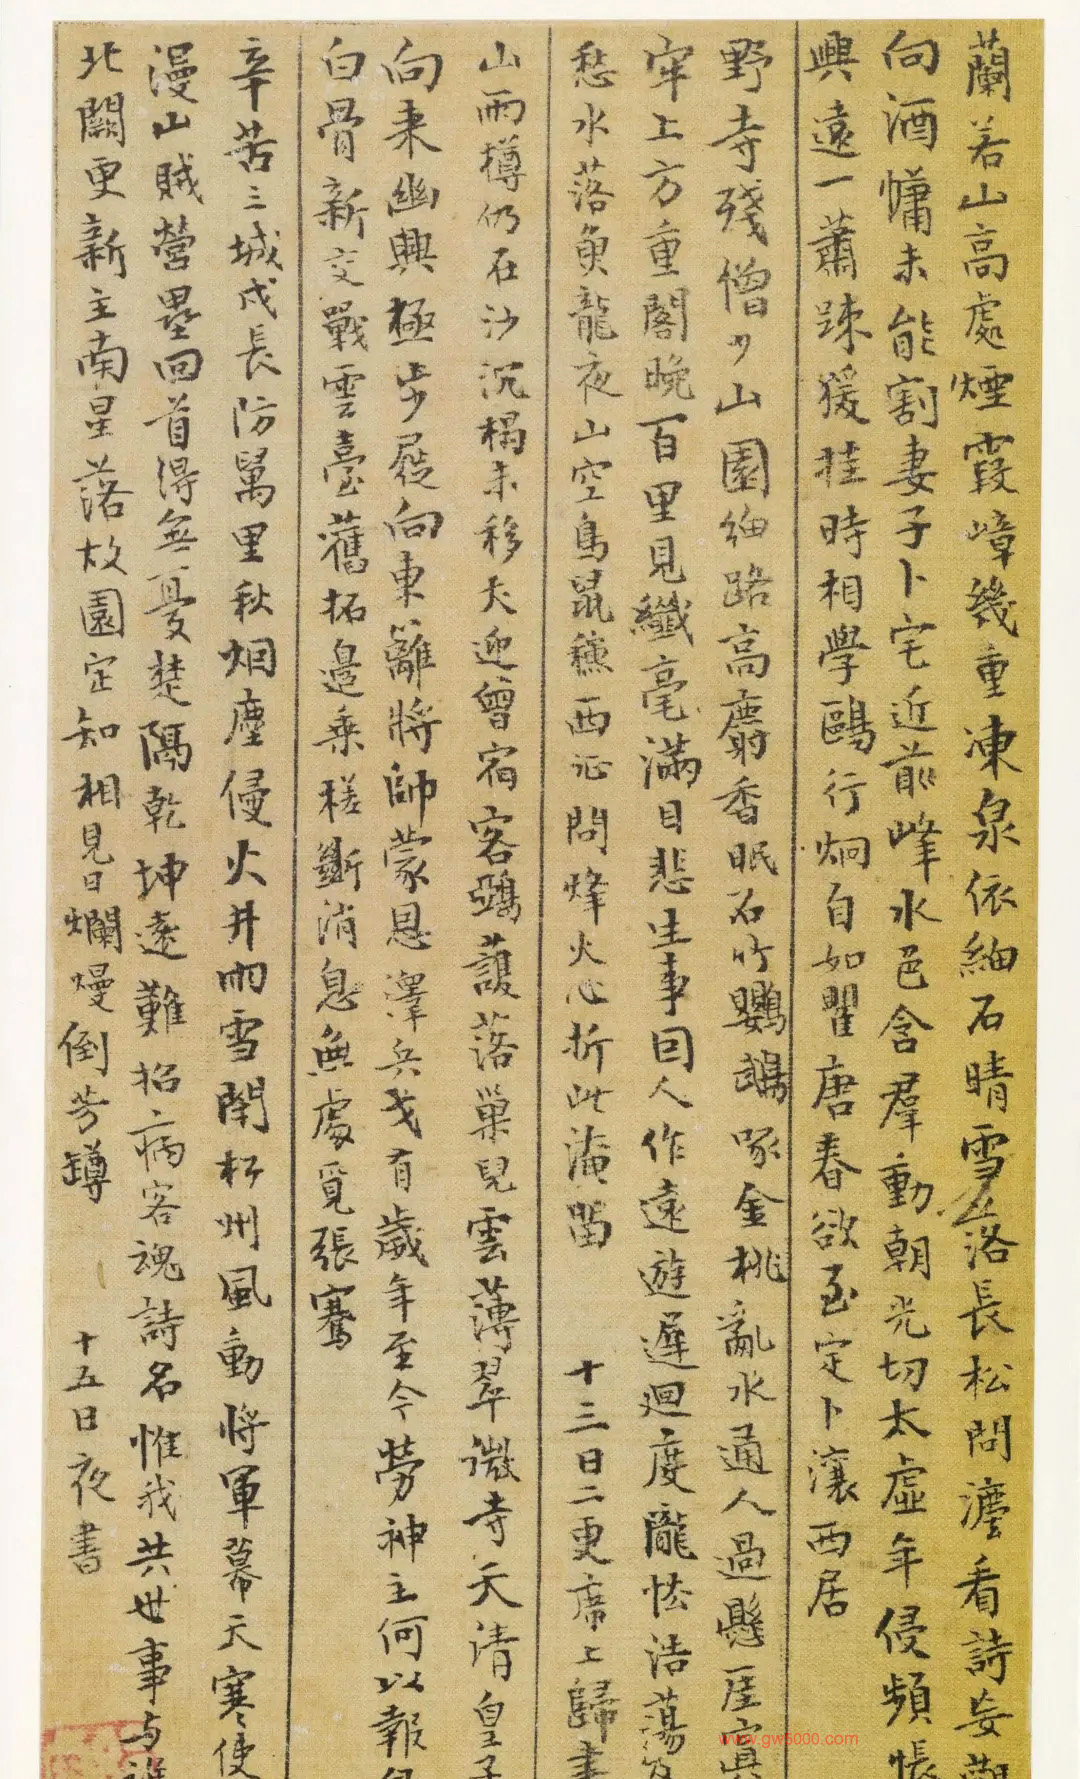 蘭若山高處煙霞嶂幾重凍泉依細石晴雪落長松問灋看詩妄觀
向酒慵未能割妻子卜宅近前峰水色含羣動朝光切太虛年侵頻悵
興遠一蕭踈猨挂時相學鷗行炯自如瞿唐春欲至定卜瀼西居
野寺殘僧少山園細路高麝香眠石竹鸚鵡啄金桃亂水通人過懸崖置
牢上方重閣晚百里見纖毫滿目悲生事因人作遠遊遲迴度隴怯浩蕩及
愁水落魚龍夜山空鳥鼠穐西征問烽火心折此淹留 十三日二更席上歸書
山雨樽仍在沙沉榻未移犬迎曾宿客鵶護落巢兒雲薄翠微寺天清皇子
向來幽興極步屐向東籬將帥蒙恩澤兵戈有歲年至今勞神主何以報
白骨新交戰雲臺舊拓邉乘槎斷消息無處覓張騫
辛苦三城戍長防萬里秋烟塵侵火井雨雪閉松州風動將軍幕天寒使
漫山賊營壘回首得無憂楚隔乾坤遠難招病客魂詩名惟我共世事与誰
北闕更新主南星落故園定知相見日爛熳倒芳罇 十五日夜書
www.gw5000.com